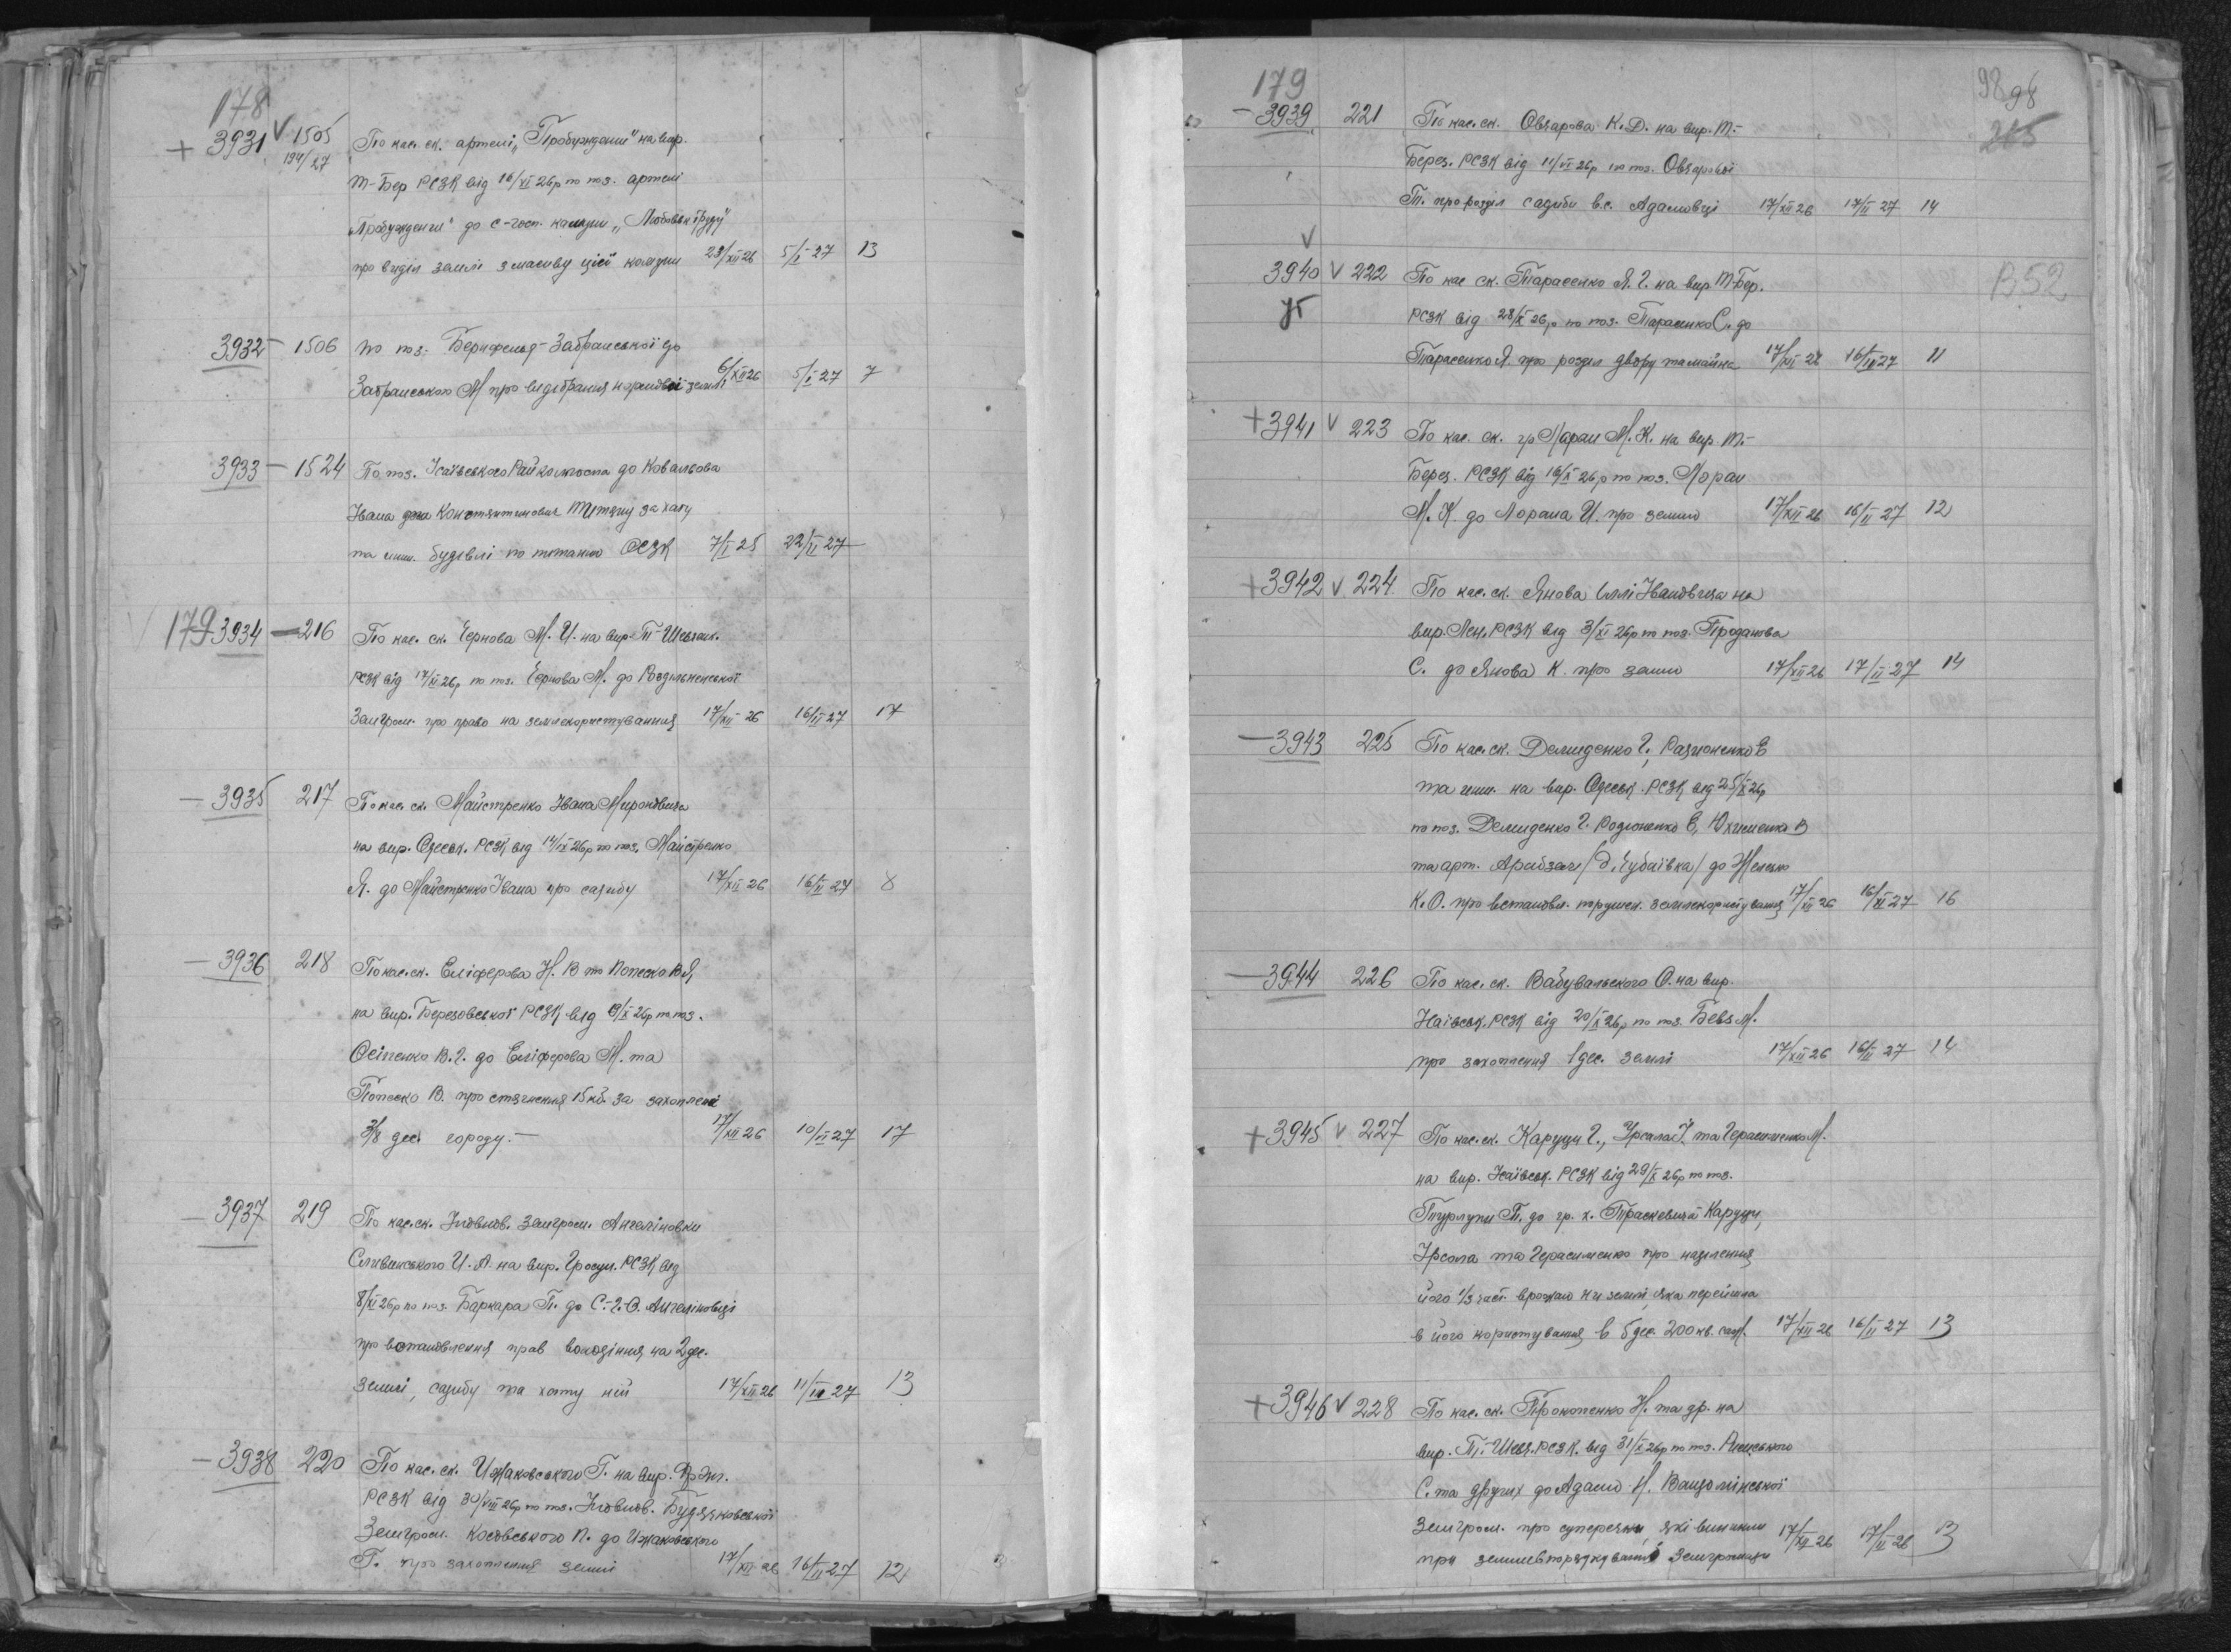 178
+ 3931 V 1505 По кас. ск. артелі „Пробуждение" на вир.
194/27
Т-Бер РСЗК від 16/XI 26р по поз. артелі
„Пробуждение" до с-госп. комуни „Любовь к труду"
про виділ землі з масиву цієї комуни 23/XII 26 5/I-27 13
3932 - 1506 по поз. Забранської до
Забранського М про відібрання землі 6/XII 26 5/I 27 7
3933 - 1524 По поз. Ісаївського до Ковальова
Івана Константиновича за хату
та инш. будівлі по питанню ОСЗК 7/I 25 22/II 27
V 179 3934 - 216 По кас. ск. Чернова М. И. на вир. Т-Шевченк.
РСЗК від 17/XI 26р по поз. Чернова М. до
Земгром. про право на землекористування 17/XII-26 16/II 27 17
- 3935 217 По кас. ск. Майстренко Івана Мироновича
на вир. Одеськ. РСЗК від 14/IX 26р по поз. Майстренко
Я. до Майстренко Івана про садибу 17/XII 26 16/II 27 8
- 3936 218 По кас. ск. Еліферова Н. В та Попеско В. Я,
на вир. Березовської РСЗК від 9/X 26р по поз.
Осіпенко В. Г. до Еліферова М. та
Попеско В. про стягнення 15 кб. за захоплені
3/8 дес. городу. - 17/XII 26 10/II 27 17
- 3937 219 По кас. ск. Уповнов. Земгром. Ангеліновки
Сливинського И. А. на вир. Гросул. РСЗК від
8/XI 26р по поз. Баркара П. до С.-Г. О. Ангеліновці
про встановлення прав володіння на 2 дес.
землі, садибу та хату ній 17/XII 26 11/II 27 13
- 3938 220 По кас. ск. Ижаковського Г. на вир.
РСЗК від 30/VIII 26р по поз. Уповнов.
Земгром. Косовського П. до Ижаковського
Г. про захоплення землі 17/XII 26 16/II 27 12
179
98 98
215
- 3939 221 По кас. ск. Овчарова К. Д. на вир. Т.-
Берез. РСЗК від 11/VI 26р по поз. Овчарової
Т. про розділ садиби в с. Адамовці 17/XII 26 17/II 27 14
V
3940 V 222 По кас ск. Тарасенко Я. Г. на вир Т-Бер.
В52
РСЗК від 28/X 26р по поз. Тарасенко С. до
Тарасенко Я. про розділ двору та майна 17/XII 26 16/II 27 11
+ 3941 V 223 По кас. ск. гр Лоран М. К. на вир. Т.-
Берез. РСЗК від 16/X 26р по поз. Лоран
М. К. до Лорана И. про землю 17/XII 26 16/II 27 12
+ 3942 V 224 По кас. ск. Янова Іллі Івановича на
вир. Лен. РСЗК від 3/XI 26р по поз. Проданова
С. до Янова К. про землю 17/XII 26 17/II 27 14
- 3943 225 По кас. ск. Демиденко Г., Радионенко Е
та инш. на вир. Одеськ. РСЗК від 25/X 26р
по поз. Демиденко Г. Родионенко Е, Юхименко В
та арт. /д. Чубаївка/ до
К. О. про встановл. трудов. землекористування 17/XII 26 16/II 27 16
- 3944 226 По кас. ск. Вабувальского О. на вир.
Ісаївськ. РСЗК від 20/X 26р по поз. Бевз М.
про захоплення 1 дес. землі 17/XII 26 16/II 27 14
+ 3945 V 227 По кас. ск. Каруци Г., Урсала І. та Герасименко М.
на вир. Ісаївськ. РСЗК від 29/X 26р по поз.
Турлупи П. до гр. х. Каруци,
Урсала та Герасименко про наділення
його 1/3 част. врожаю на землі, яка перейшла
в його користування в 5 дес. 200 кв. саж. 17/XII 26 16/II 27 13
+ 3946 V 228 По кас. ск. Прокопенко Н. та др. на
вир. Т.-Шевч. РСЗК. від 31/X 26р по поз.
С. та других до Адама Н.
Земгром. про суперечки, які виникли 17/XII 26 17/II 26 13
при землевпорядкуванні Земгромади